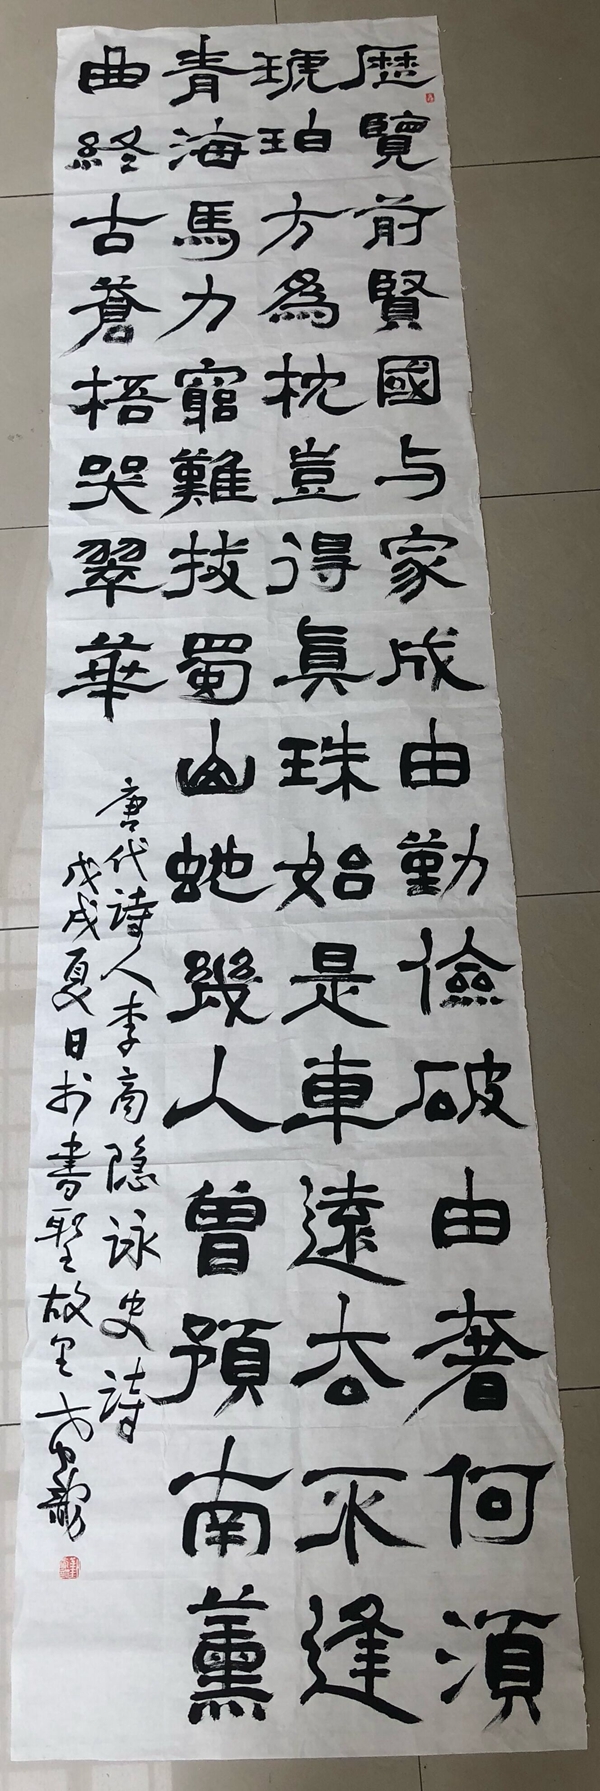 歷覽前賢國与家成由勤儉破由奢何須
琥珀方為枕豈得眞珠始是車遠去不逢
青海馬力窮難拔蜀山蛇幾人曾預南薰
曲終古蒼梧哭翠華
唐代詩人李商隐詠史詩
戊戌夏日於書聖故里